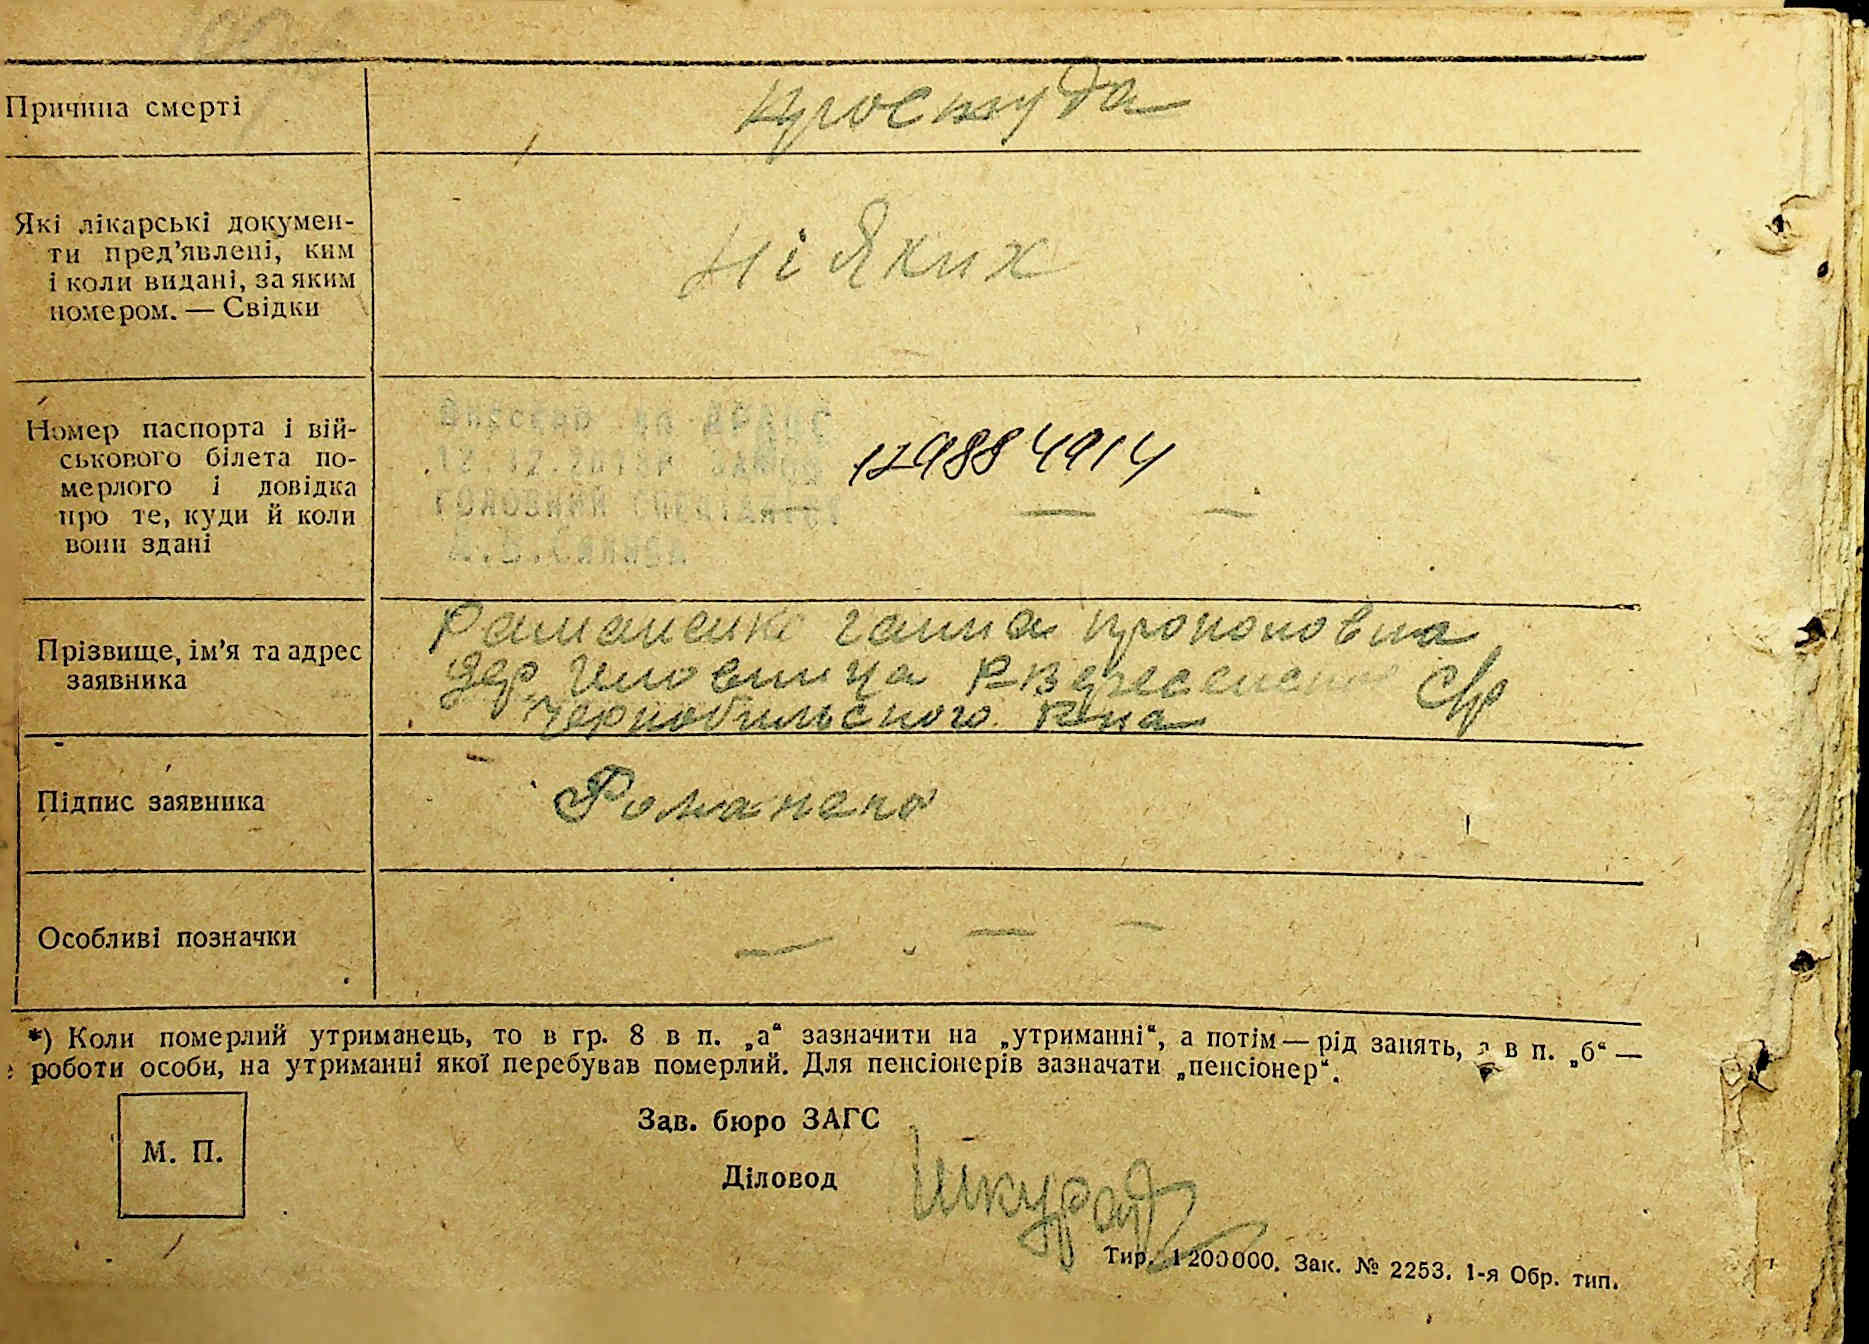 Причина смерті
простуда
Які лікарські докумен-
ти пред'явлені, ким
і коли видані, за яким
номером. — Свідки
ні яких
Номер паспорта і вій-
ськового білета по-
мерлого і довідка
про те, куди й коли
вони здані
12.12.2013р
головний спеціаліст
— — —
Прізвище, ім'я та адрес
заявника
Раманенко ганна
дер.
Чернобильского Р-на
Підпис заявника
Романенко
Особливі позначки
— — —
*) Коли померлий утриманець, то в гр. 8 в п. „а“ зазначити на „утриманні“, а потім — рід занять, а в п. „б“ —
роботи особи, на утриманні якої перебував померлий. Для пенсіонерів зазначати „пенсіонер“.
М. П.
Зав. бюро ЗАГС
Діловод
Шкурат
Тир. 1200000. Зак. № 2253. 1-я Обр. тип.